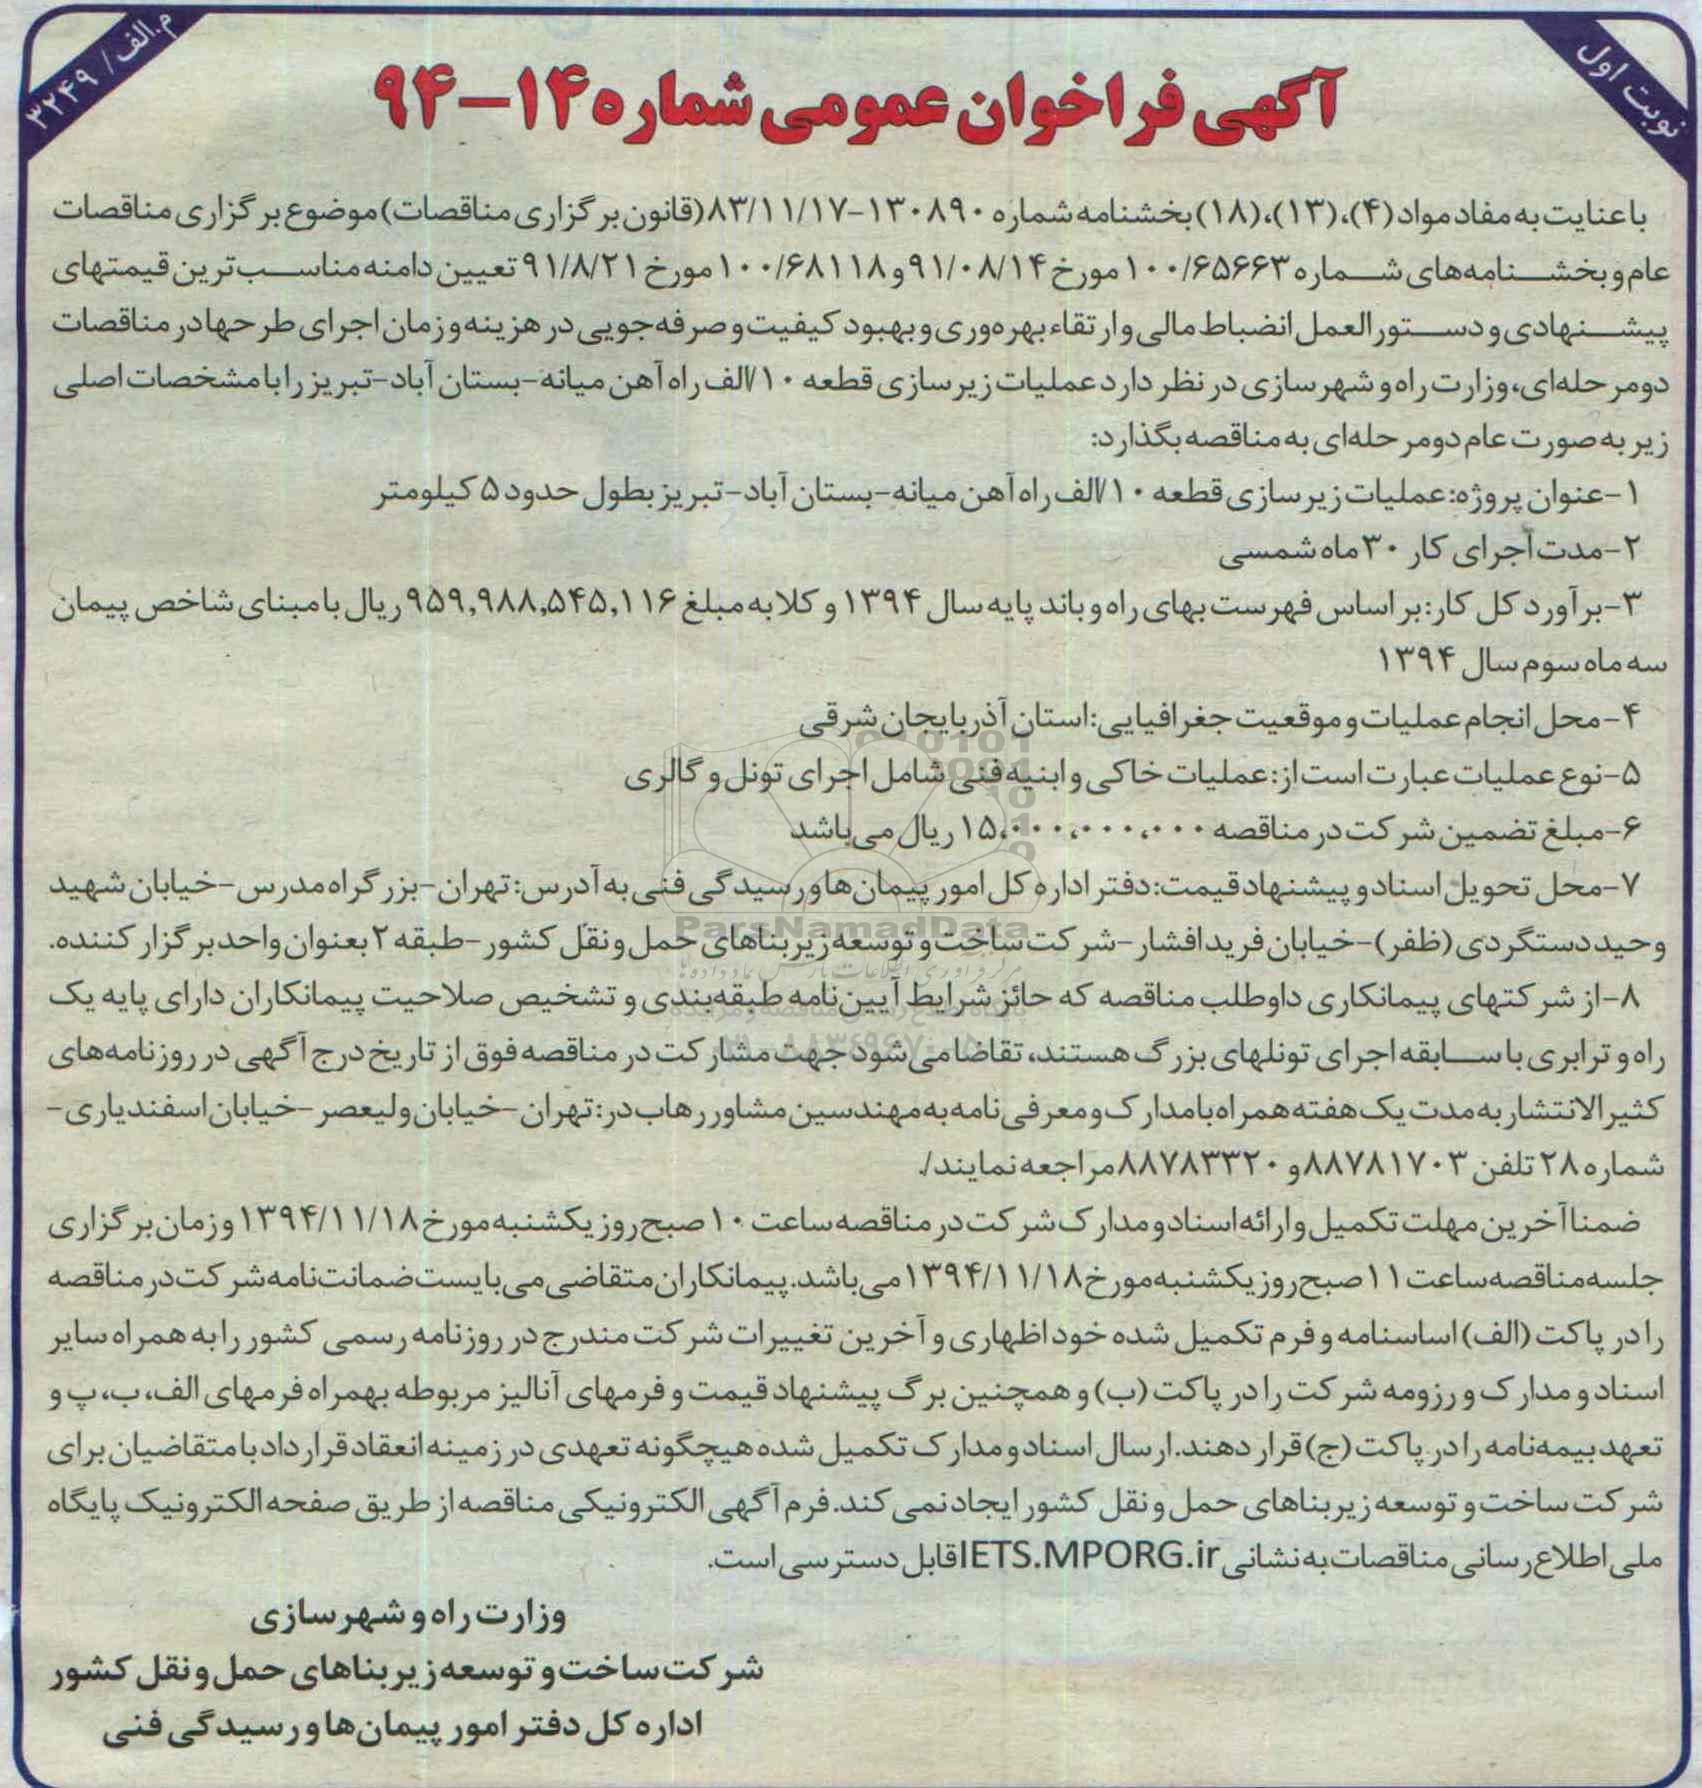 نوبت اول
م.الف/ ۳۲۴۹
آگهی فراخوان عمومی شماره ۱۴-۹۴
با عنایت به مفاد مواد (۴)، (۱۳)، (۱۸) بخشنامه شماره ۱۳۰۸۹۰-۸۳/۱۱/۱۷ (قانون برگزاری مناقصات) موضوع برگزاری مناقصات
عام و بخشنامه‌های شماره ۱۰۰/۶۵۶۶۳ مورخ ۹۱/۰۸/۱۴ و ۱۰۰/۶۸۱۱۸ مورخ ۹۱/۸/۲۱ تعیین دامنه مناسب‌ترین قیمتهای
پیشنهادی و دستورالعمل انضباط مالی و ارتقاء بهره‌وری و بهبود کیفیت و صرفه‌جویی در هزینه و زمان اجرای طرحها در مناقصات
دومرحله‌ای، وزارت راه و شهرسازی در نظر دارد عملیات زیرسازی قطعه ۱۰/الف راه آهن میانه-بستان آباد-تبریز را با مشخصات اصلی
زیر به صورت عام دومرحله‌ای به مناقصه بگذارد:
۱-عنوان پروژه: عملیات زیرسازی قطعه ۱۰/الف راه آهن میانه-بستان آباد-تبریز بطول حدود ۵ کیلومتر
۲-مدت اجرای کار ۳۰ ماه شمسی
۳-برآورد کل کار: بر اساس فهرست بهای راه و باند پایه سال ۱۳۹۴ و کلا به مبلغ ۹۵۹,۹۸۸,۵۴۵,۱۱۶ ریال با مبنای شاخص پیمان
سه ماه سوم سال ۱۳۹۴
۴-محل انجام عملیات و موقعیت جغرافیایی: استان آذربایجان شرقی
۵-نوع عملیات عبارت است از: عملیات خاکی و ابنیه فنی شامل اجرای تونل و گالری
۶-مبلغ تضمین شرکت در مناقصه ۱۵,۰۰۰,۰۰۰,۰۰۰ ریال می‌باشد
۷-محل تحویل اسناد و پیشنهاد قیمت: دفتر اداره کل امور پیمان‌ها و رسیدگی فنی به آدرس: تهران-بزرگراه مدرس-خیابان شهید
وحید دستگردی (ظفر)-خیابان فرید افشار-شرکت ساخت و توسعه زیربناهای حمل و نقل کشور-طبقه ۲ بعنوان واحد برگزار کننده.
ParsNamadData
۸-از شرکتهای پیمانکاری داوطلب مناقصه که حائز شرایط آیین‌نامه طبقه‌بندی و تشخیص صلاحیت پیمانکاران دارای پایه یک
راه و ترابری با سابقه اجرای تونلهای بزرگ هستند، تقاضا می‌شود جهت مشارکت در مناقصه فوق از تاریخ درج آگهی در روزنامه‌های
کثیرالانتشار به مدت یک هفته همراه با مدارک و معرفی نامه به مهندسین مشاور رهاب در: تهران-خیابان ولیعصر-خیابان اسفندیاری-
شماره ۲۸ تلفن ۸۸۷۸۱۷۰۳ و ۸۸۷۸۳۳۲۰ مراجعه نمایند/.
ضمنا آخرین مهلت تکمیل و ارائه اسناد و مدارک شرکت در مناقصه ساعت ۱۰ صبح روز یکشنبه مورخ ۱۳۹۴/۱۱/۱۸ و زمان برگزاری
جلسه مناقصه ساعت ۱۱ صبح روز یکشنبه مورخ ۱۳۹۴/۱۱/۱۸ می‌باشد. پیمانکاران متقاضی می‌بایست ضمانت نامه شرکت در مناقصه
را در پاکت (الف) اساسنامه و فرم تکمیل شده خود اظهاری و آخرین تغییرات شرکت مندرج در روزنامه رسمی کشور را به همراه سایر
اسناد و مدارک و رزومه شرکت را در پاکت (ب) و همچنین برگ پیشنهاد قیمت و فرمهای آنالیز مربوطه بهمراه فرمهای الف، ب، پ و
تعهد بیمه‌نامه را در پاکت (ج) قرار دهند. ارسال اسناد و مدارک تکمیل شده هیچگونه تعهدی در زمینه انعقاد قرارداد با متقاضیان برای
شرکت ساخت و توسعه زیربناهای حمل و نقل کشور ایجاد نمی کند. فرم آگهی الکترونیکی مناقصه از طریق صفحه الکترونیک پایگاه
ملی اطلاع رسانی مناقصات به نشانی IETS.MPORG.ir قابل دسترسی است.
وزارت راه و شهرسازی
شرکت ساخت و توسعه زیربناهای حمل و نقل کشور
اداره کل دفتر امور پیمان‌ها و رسیدگی فنی